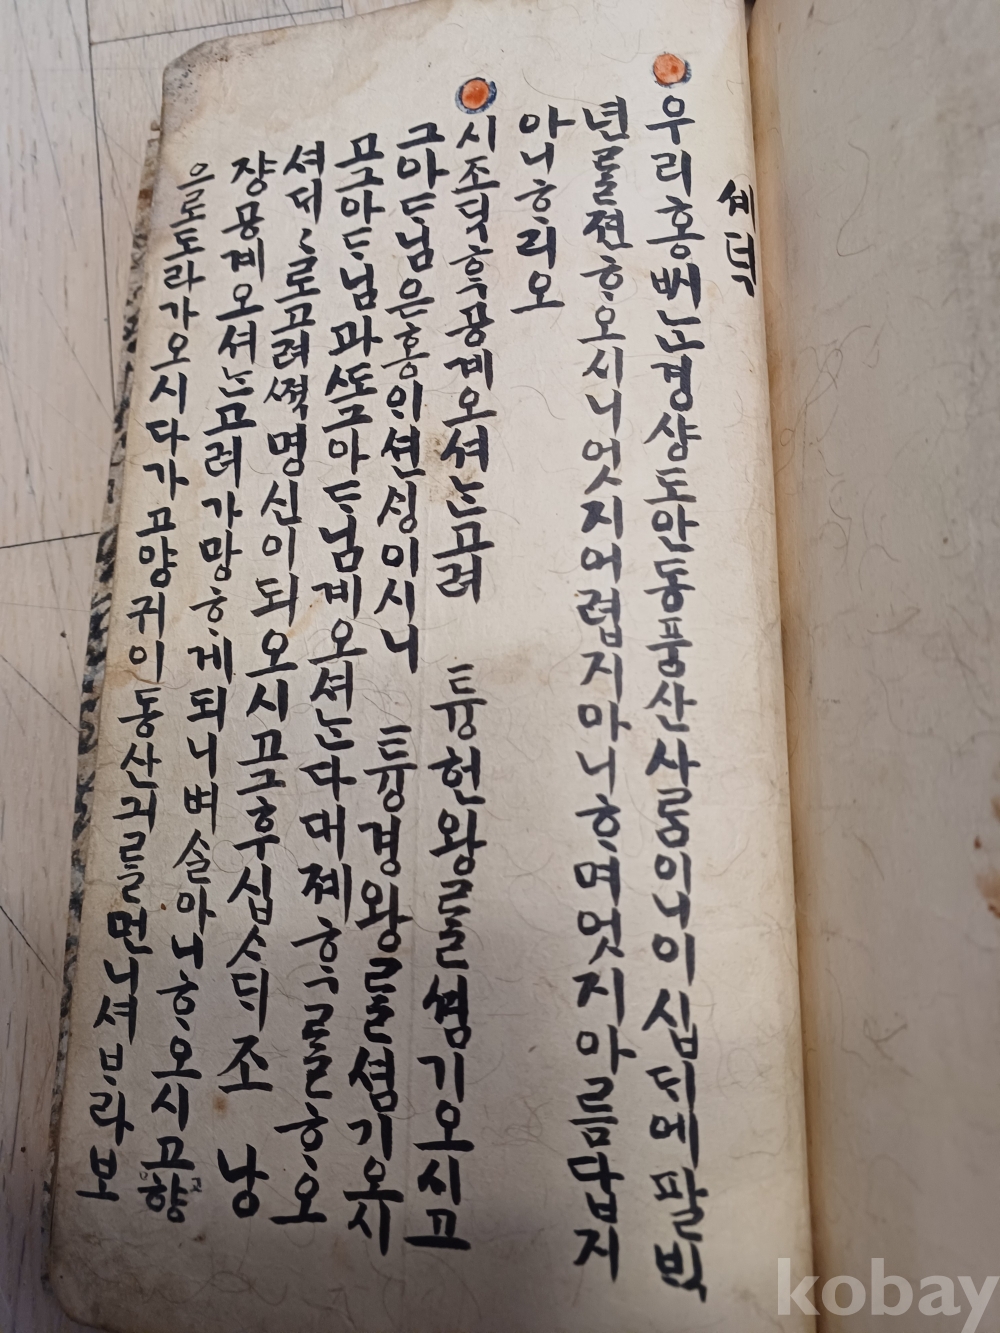 셰덕
우리홍ᄡᅵᄂᆞᆫ경샹도안동풍산사ᄅᆞᆷ이니이십ᄃᆡ에팔ᄇᆡᆨ
년ᄅᆞᆯ젼ᄒᆞ오시니엇지어렵지아니ᄒᆞ며엇지아름답지
아니ᄒᆞ리오
시조딕ᄒᆞᆨ공계오셔ᄂᆞᆫ고려 튱헌왕ᄅᆞᆯ셤기오시고
그아ᄃᆞ님은홍ᄋᆡ션ᄉᆡᆼ이시니 튱경왕ᄅᆞᆯ셤기오시
고그아ᄃᆞ님과ᄯᅩ그아ᄃᆞ님계오셔ᄂᆞᆫ다대졔ᄒᆞᆨᄅᆞᆯᄒᆞ오
셔ᄃᆡ〻로고려ᄶᅥᆨ명신이되오시고그후십ᄉᆞᄃᆡ조 낭
쟝공계오셔ᄂᆞᆫ고려가망ᄒᆞ게되니벼슬아니ᄒᆞ오시고고향
으로도라가오시다가고양귀이동산긔ᄅᆞᆯ먼니셔ᄇᆞ라보
kobay